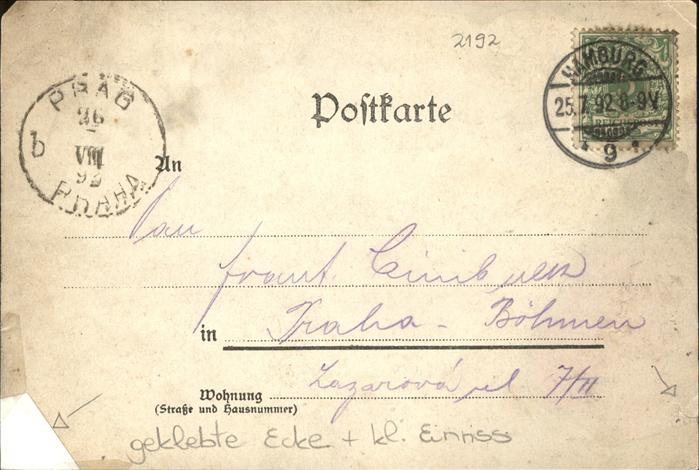 2192
HAMBURG
25.7.92 8-9V
* 9 *
Postkarte
PRAG
26
VIII
92
b
PRAHA
An
Pan
Frant.
in Praha - Böhmen
Wohnung Lazarová ul 7/II
(Straße und Hausnummer)
geklebte Ecke + kl. Einriss